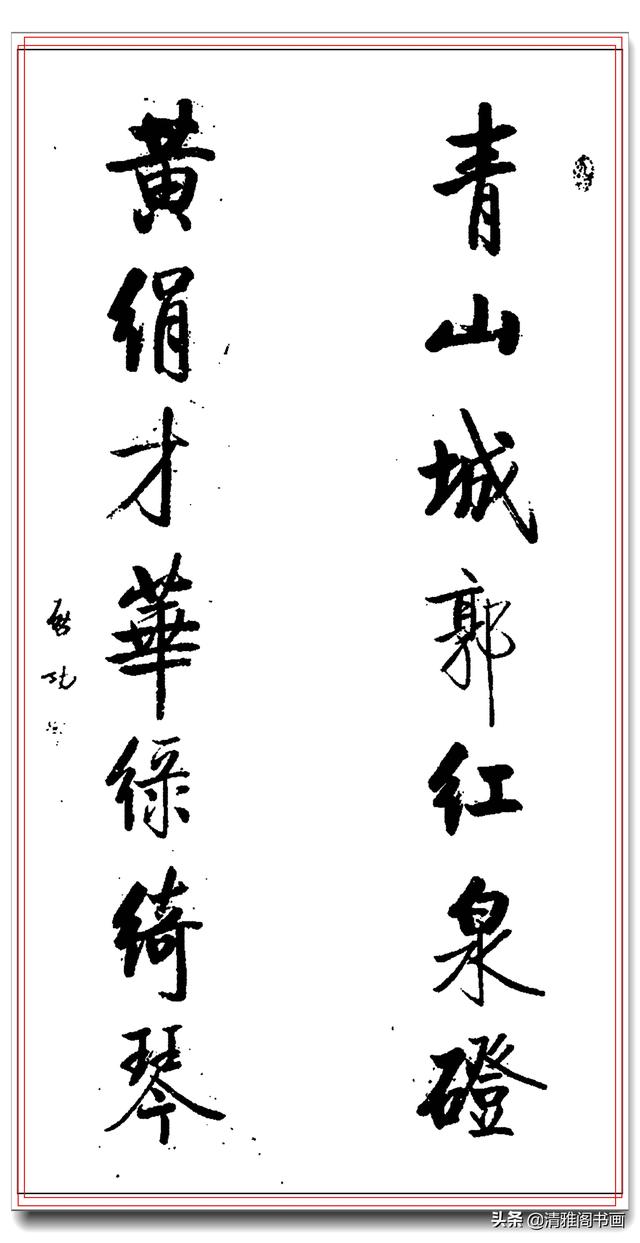 青山城郭红泉磴
黄绢才華绿绮琴
啟功
头条 @清雅阁书画